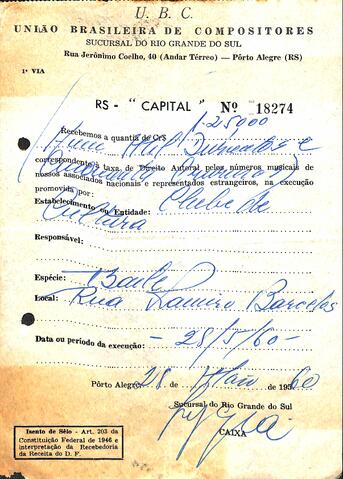 U. B. C.
UNIÃO BRASILEIRA DE COMPOSITORES
SUCURSAL DO RIO GRANDE DO SUL
Rua Jerônimo Coelho, 40 (Andar Térreo) — Pôrto Alegre (RS)
1ª VIA
RS - "CAPITAL" Nº 18274
Recebemos a quantia de Cr$ 1.250,00
Hum Mil Duzentos e
correspondente à taxa de Direito Autoral pelos números musicais de
nossos associados nacionais e representados estrangeiros, na execução
promovida por:
Estabelecimento ou Entidade: Clube de
Cultura
Responsável:
Espécie: Baile
Local: Rua Ramiro Barcelos
Data ou período da execução: — 28/5/60 —
Pôrto Alegre, 28 de Maio 1960
Sucursal do Rio Grande do Sul
CAIXA
Isento de Sêlo - Art. 203 da
Constituição Federal de 1946 e
interpretação da Recebedoria
da Receita do D. F.